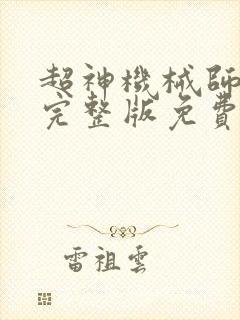 超神機械師
完整版免費
雷祖雲